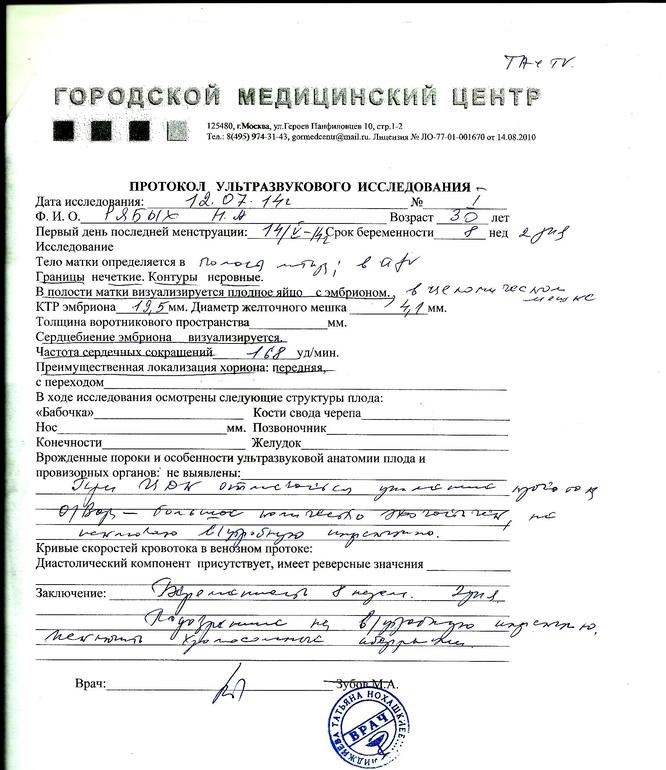 ТА и TV.
ГОРОДСКОЙ МЕДИЦИНСКИЙ ЦЕНТР
125480, г.Москва, ул.Героев Панфиловцев 10, стр.1-2
Тел.: 8(495) 974-31-43, gormedcentr@mail.ru. Лицензия № ЛО-77-01-001670 от 14.08.2010
ПРОТОКОЛ УЛЬТРАЗВУКОВОГО ИССЛЕДОВАНИЯ
Дата исследования: 12.07.14г № 1
Ф. И. О. РЯБЫХ Н.А Возраст 30 лет
Первый день последней менструации: 14/V-14г Срок беременности 8 нед 2 дня
Исследование
Тело матки определяется в
Границы нечеткие. Контуры неровные.
В полости матки визуализируется плодное яйцо с эмбрионом, в целомическом мешке
КТР эмбриона 19,5 мм. Диаметр желточного мешка 4,1 мм.
Толщина воротникового пространства мм.
Сердцебиение эмбриона визуализируется.
Частота сердечных сокращений 168 уд/мин.
Преимущественная локализация хориона: передняя,
с переходом
В ходе исследования осмотрены следующие структуры плода:
«Бабочка» Кости свода черепа
Нос мм. Позвоночник
Конечности Желудок
Врожденные пороки и особенности ультразвуковой анатомии плода и
провизорных органов: не выявлены:
При ЦДК отмечается усиление
большое количество не
исключаю в/утробную инфекцию.
Кривые скоростей кровотока в венозном протоке:
Диастолический компонент присутствует, имеет реверсные значения
Заключение: Беременность 8 недель. 2 дня
Подозрение на в/утробную инфекцию,
исключить хромосомные аберрации.
Врач: Зубов М.А.
ТАТЬЯНА НОХАШКИЕВ
ВРАЧ